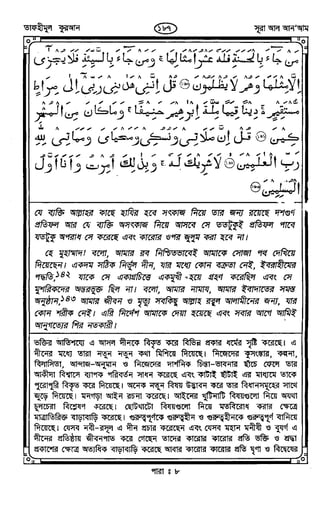 তাফহীমুল কুরআন
১৮৭
সূরা আল আন'আম
مَنْ جَآءَ بِالْحَسَنَةِ فَلَهٗ عَشْرُ اَمْثَالِهَا ۚ وَمَنْ جَآءَ بِالسَّيِّئَةِ فَلَا يُجْزٰٓى
اِلَّا مِثْلَهَا وَهُمْ لَا يُظْلَمُوْنَ ۝ قُلْ اِنَّنِيْ هَدٰىنِيْ رَبِّيْٓ اِلٰى صِرَاطٍ
مُّسْتَقِيْمٍ ۚ دِيْنًا قِيَمًا مِّلَّةَ اِبْرٰهِيْمَ حَنِيْفًا ۚ وَمَا كَانَ مِنَ الْمُشْرِ
كِيْنَ ۝ قُلْ اِنَّ صَلَاتِيْ وَنُسُكِيْ وَمَحْيَايَ وَمَمَاتِيْ لِلّٰهِ
رَبِّ الْعٰلَمِيْنَ ۝ لَا شَرِيْكَ لَهٗ ۚ وَبِذٰلِكَ اُمِرْتُ وَاَنَا اَوَّلُ
الْمُسْلِمِيْنَ ۝
যে ব্যক্তি আল্লাহর কাছে হাযির হবে সৎকাজ নিয়ে তার জন্য রয়েছে দশগুণ
প্রতিফল আর যে ব্যক্তি অসৎকাজ নিয়ে আসবে সে ততটুকুই প্রতিফল পাবে
যতটুকু অপরাধ সে করেছে এবং কারোর ওপর জুলুম করা হবে না।
হে মুহাম্মাদ! বলো, আমার রব নিশ্চিতভাবেই আমাকে সোজা পথ দেখিয়ে
দিয়েছেন। একদম সঠিক নির্ভুল দীন, যার মধ্যে কোন বক্রতা নেই, ইবরাহীমের
পদ্ধতি,১৪২ যাকে সে একাগ্রচিত্তে একমুখী হয়ে গ্রহণ করেছিল এবং সে
মুশরিকদের অন্তরভুক্ত ছিল না। বলো, আমার নামায, আমার ইবাদাতের সমস্ত
অনুষ্ঠান,১৪৩ আমার জীবন ও মৃত্যু সবকিছু আল্লাহ রব্বুল আলামীনের জন্য, যার
কোন শরীক নেই। এরি নির্দেশ আমাকে দেয়া হয়েছে এবং সবার আগে আমিই
আনুগত্যের শির নতকারী।
ভক্তির আতিশয্যে এ আসল দীনকে বিকৃত করে বিভিন্ন প্রকার ধর্মের সৃষ্টি করেছে। এ
দীনের মধ্যে তারা নতুন নতুন কথা মিশিয়ে দিয়েছে। নিজেদের কুসংস্কার, কল্পনা,
বিলাসিতা, আন্দাজ-অনুমান ও নিজেদের দার্শনিক চিন্তা-ভাবনার ছাঁচে ফেলে তার
আকীদা বিশ্বাসে ব্যাপক পরিবর্তন সাধন করেছে এবং কাটাই ছাঁটাই এর মাধ্যমে তাকে
পুরোপুরি বিকৃত করে দিয়েছে। অনেক নতুন বিষয় উদ্ভাবন করে তার বিধানসমূহের সাথে
জুড়ে দিয়েছে। মনগড়া আইন রচনা করেছে। আইনের খুটিনাটি বিষয়গুলো নিয়ে অযথা
চুলচেরা বিশ্লেষণ করেছে। ছোটখাটো বিষয়গুলো নিয়ে মতবিরোধ করার ক্ষেত্রে
মাত্রাতিরিক্ত বাড়াবাড়ি করেছে। গুরুত্বপূর্ণকে গুরুত্বহীন ও গুরুত্বহীনকে গুরুত্বপূর্ণ বানিয়ে
দিয়েছে। যেসব নবী-রসূল এ দীন প্রচার করেছেন এবং যেসব মহান মনীষী ও বুযর্গ এ
দীনের প্রতিষ্ঠায় জীবনপাত করে গেছেন তাদের কারোর কারোর প্রতি ভক্তি ও শ্রদ্ধা
প্রকাশের ক্ষেত্রে অত্যধিক বাড়াবাড়ি করেছে আবার কারোর কারোর প্রতি ঘৃণা ও বিদ্বেষের
পারা : ৮